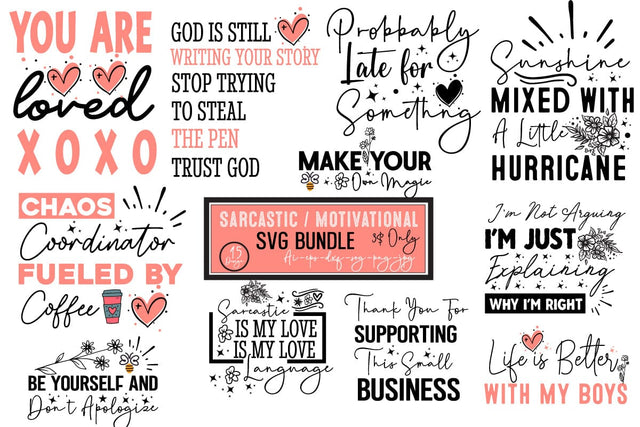 YOU ARE
loved
XOXO
GOD IS STILL
WRITING YOUR STORY
STOP TRYING
TO STEAL
THE PEN
TRUST GOD
Probbably
Late for
Something
MAKE YOUR
Own Magic
Sunshine
MIXED WITH
A Little
HURRICANE
CHAOS
Coordinator
FUELED BY
Coffee
SARCASTIC / MOTIVATIONAL
SVG BUNDLE 3$ Only
15
Ai-eps-dxf-svg-png-jpg
I'm Not Arguing
I'M JUST
Explaining
WHY I'M RIGHT
BE YOURSELF AND
Don't Apologize
Sarcastic
IS MY LOVE
IS MY LOVE
Language
Thank You For
SUPPORTING
This Small
BUSINESS
Life is Better
WITH MY BOYS